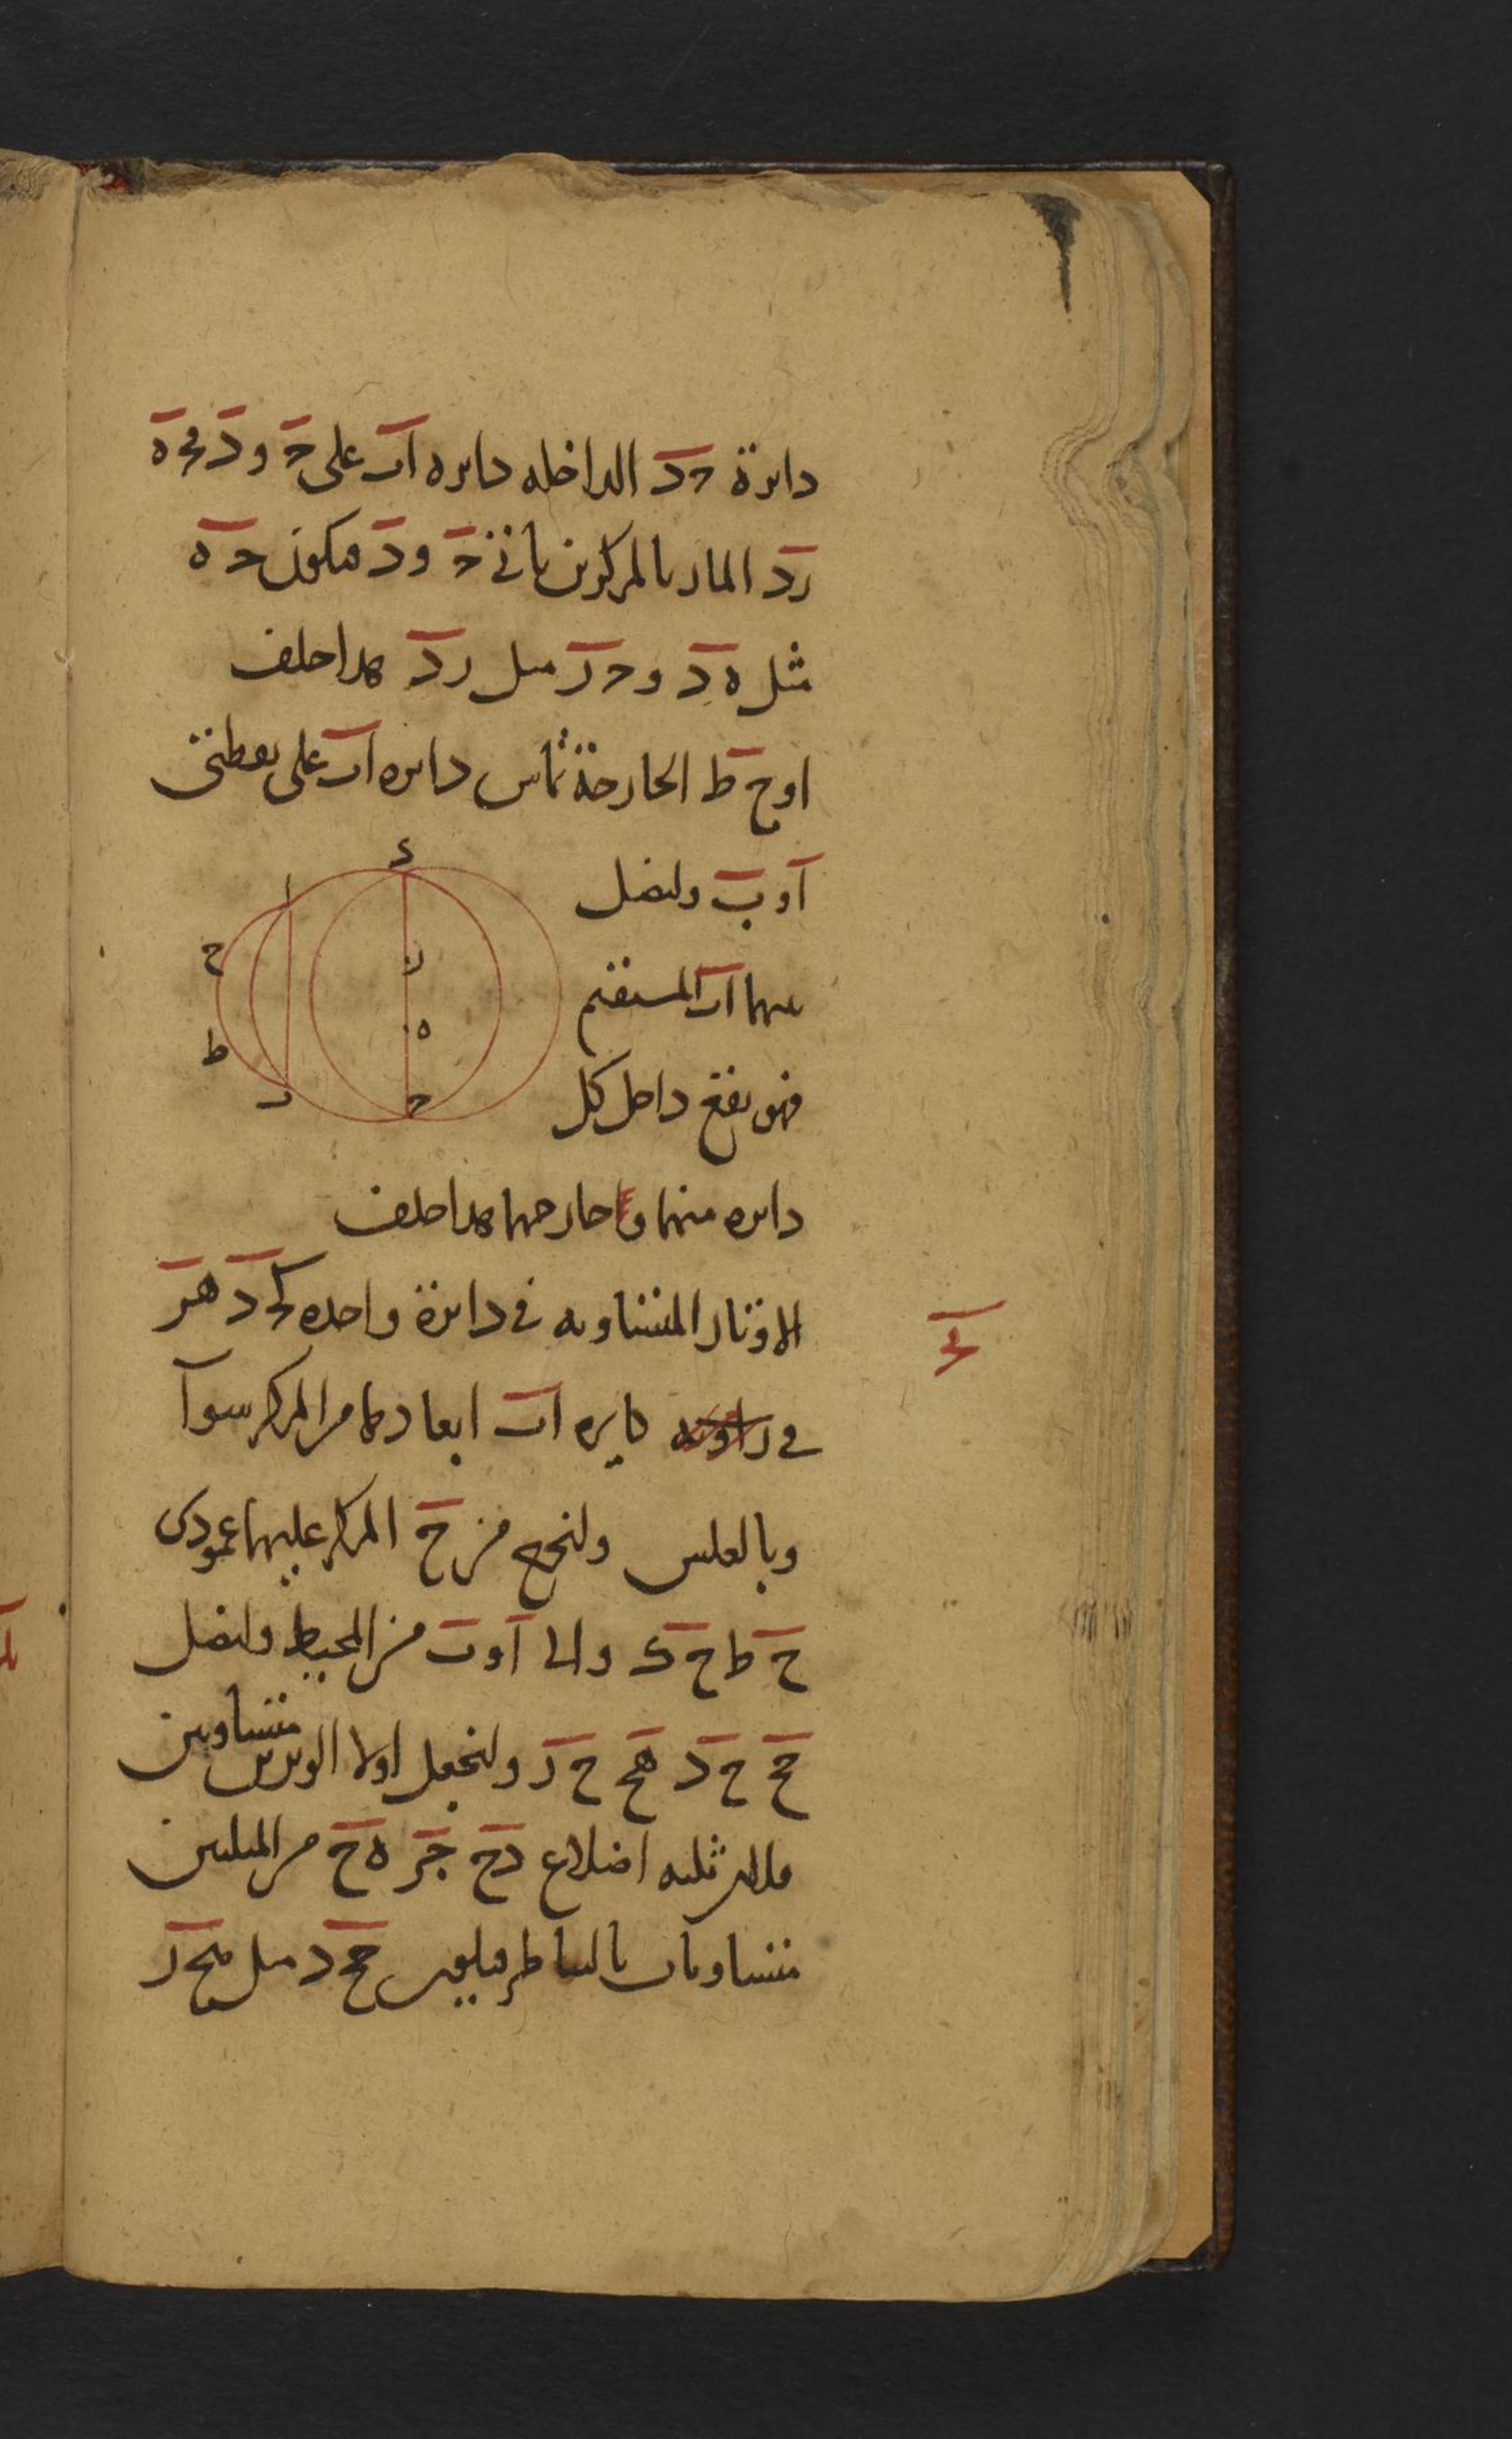 دائرة حد الداخله دايره اب على ح و د فحه
رد المار بالمركزين ياتي ح و د فيكون ح ه
مثل ه د و ح ر مثل ر د هذا خلف
او ح ط الخارجة تماس دايره اب على نقطتي
ا و ب ولنصل
ى
ا
ر
ح
بينهما اب المستقيم
ه
ط
فهو يقع داخل كل
ح
ب
دايره منهما وخارجها هذا خلف
الاوتار المتساويه في دائرة واحده كحد هر
يد
في دايره اب ابعادها من المركز سوآ
وبالعكس ولنخرج من ح المركز عليهما عمودى
ح ط ح ى والى ا و ب من المحيط ولنصل
حح ح د هح ح ر ولنجعل اولا الوترين متساويين
فلان ثلثه اضلاع دح جر ه ح من المثلثين
متساويات بالتناظر فيكون حح د مثل هح ر